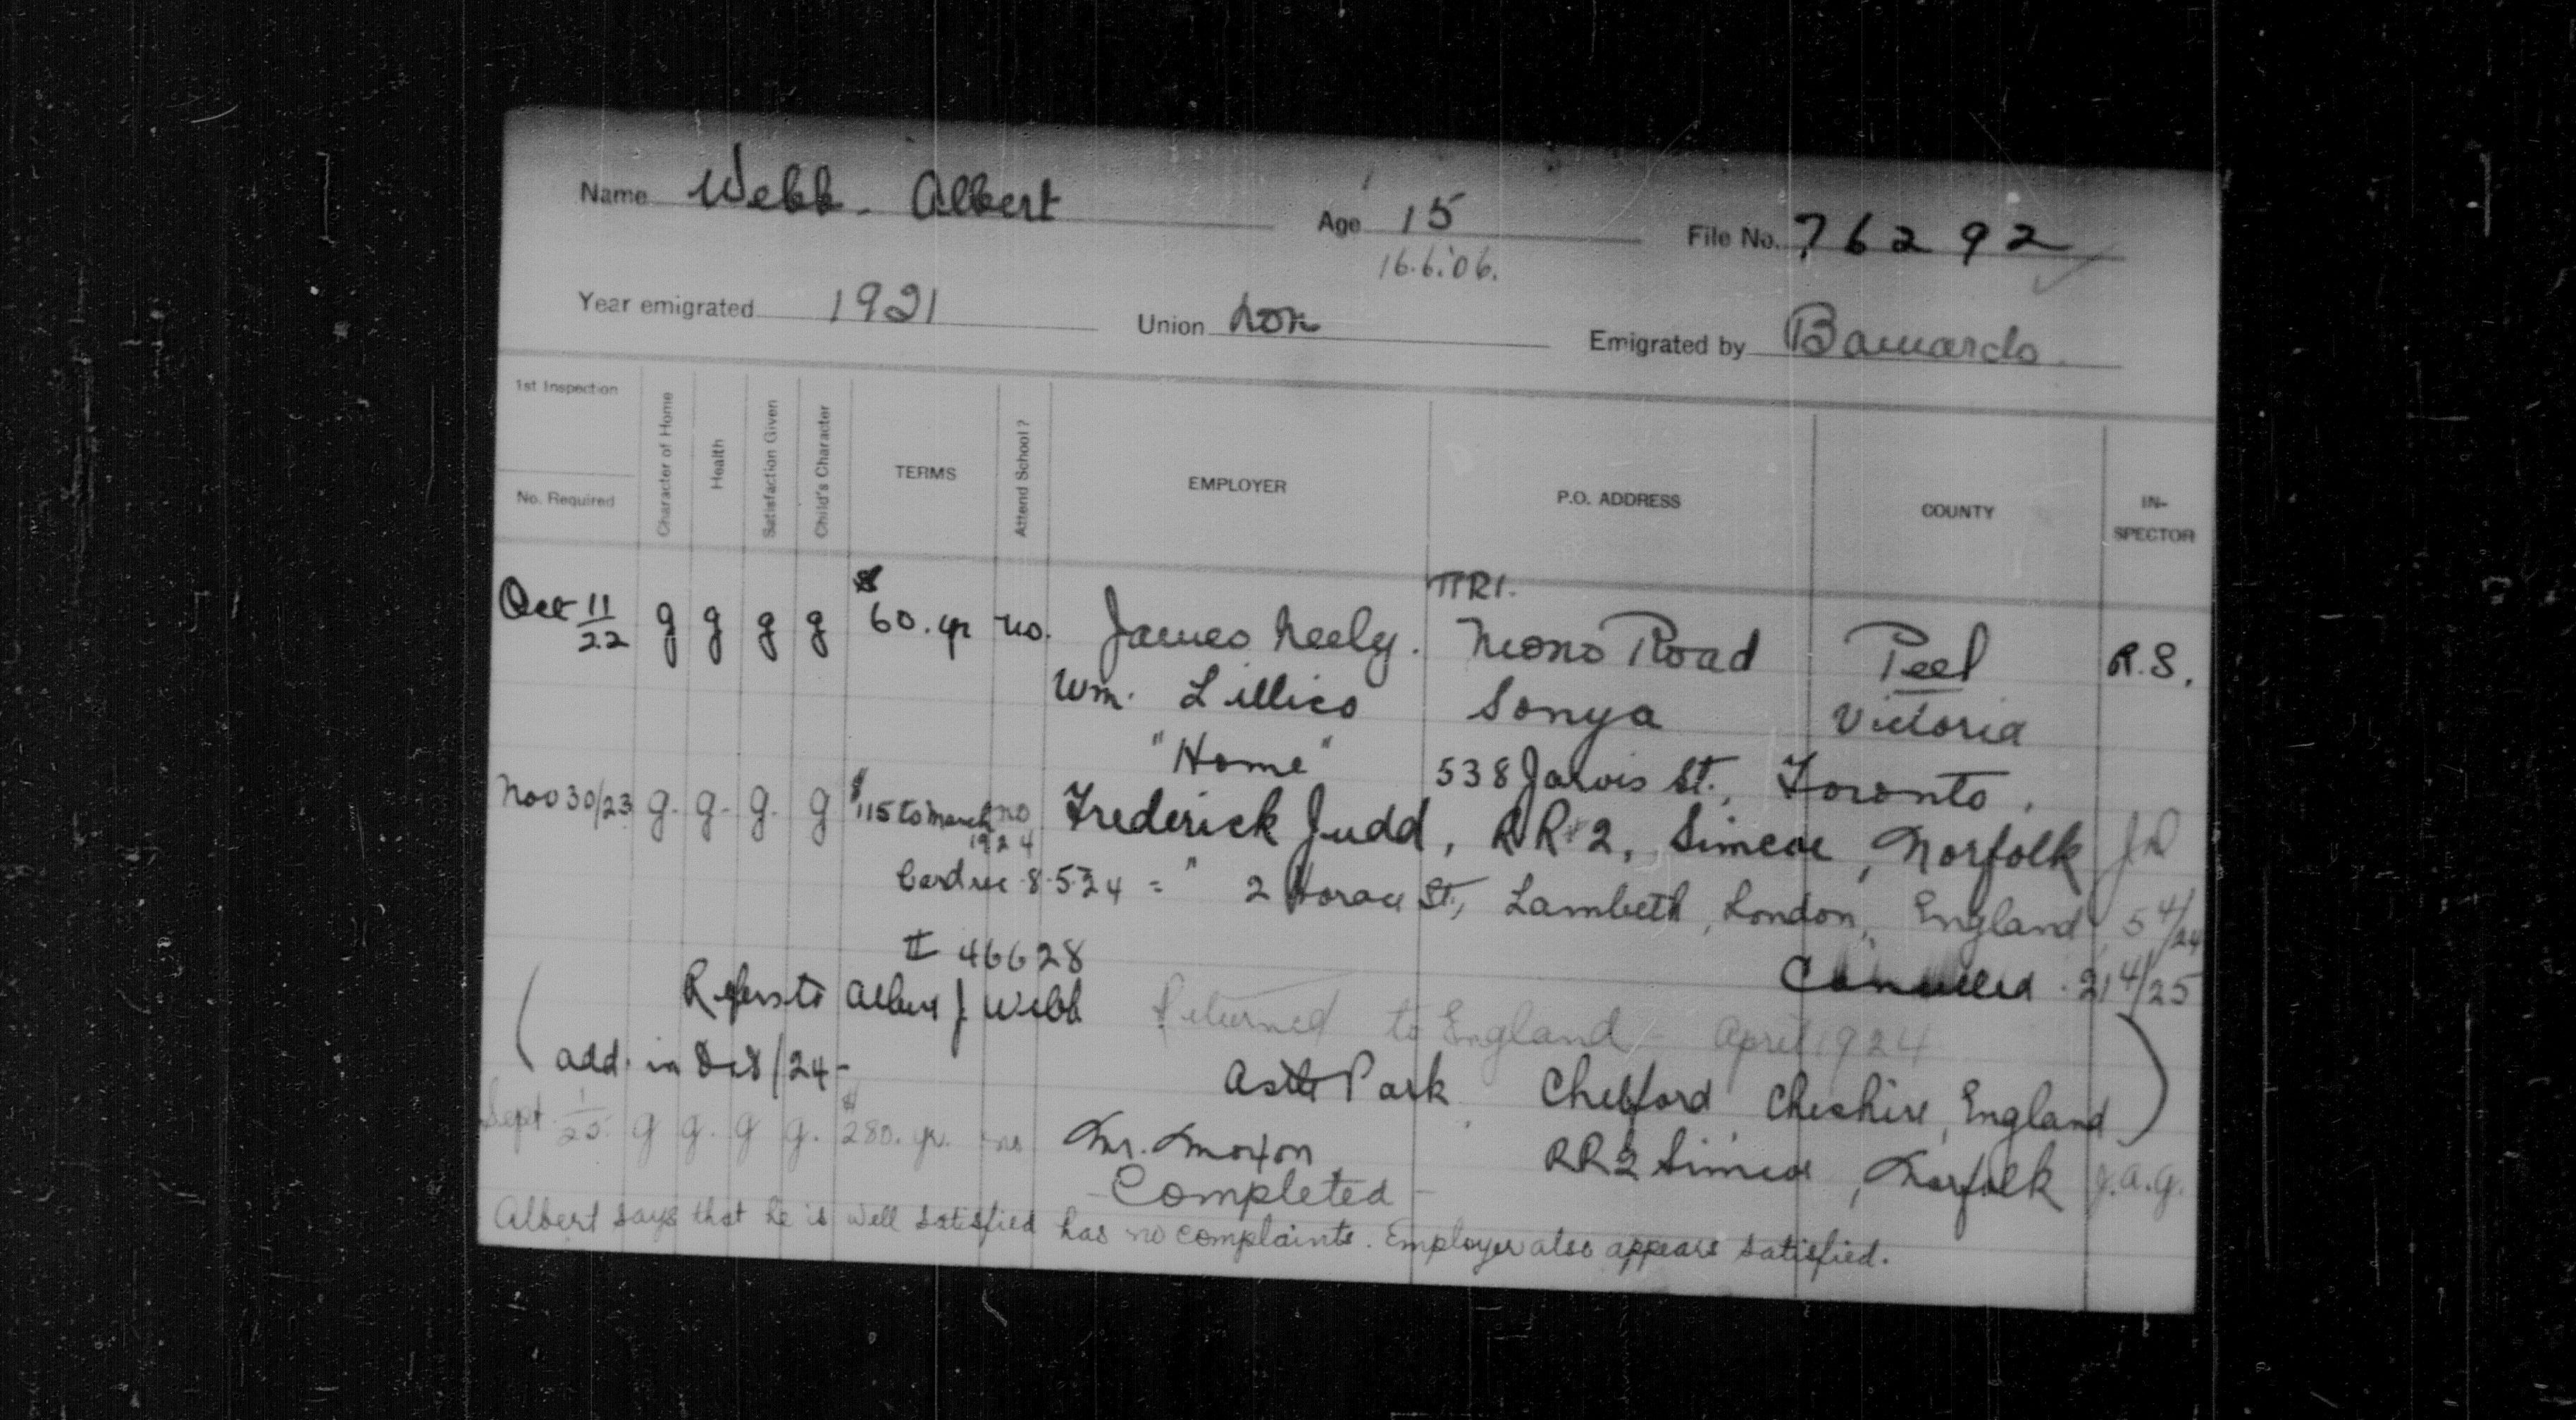 Name Webb - Albert Age 15 File No. 76292
16.6.'06.
Year emigrated 1921 Union Lon Emigrated by Barnardo.
1st Inspection
No. Required
Character of Home
Health
Satisfaction Given
Child's Character
TERMS
Attend School?
EMPLOYER
P.O. ADDRESS
COUNTY
IN-
SPECTOR
RR1.
Oct 11/22 g g g g $60. yr no. James Neely. Mono Road Peel R.S.
Wm. Lillico Sonya Victoria
"Home" 538 Jarvis St., Toronto.
Nov 30/23 g. g. g. g $115 to March 1924 no Frederick Judd, RR 2, Simcoe, Norfolk J.D
Card rec 8.5.24 = " 2 Horace St., Lambeth, London, England 5 4/24
II 46628
Cancelled 21 4/25
Refers to Albert J Webb Returned to England - April 1924
(add. in 8/24 -
Astle Park, Chelford, Cheshire, England)
Sept 1/25. g g. g g. $280. yr. no Mr. Moxon RR2 Simcoe, Norfolk J.A.G.
- Completed -
Albert says that he is well satisfied has no complaints. Employer also appears satisfied.